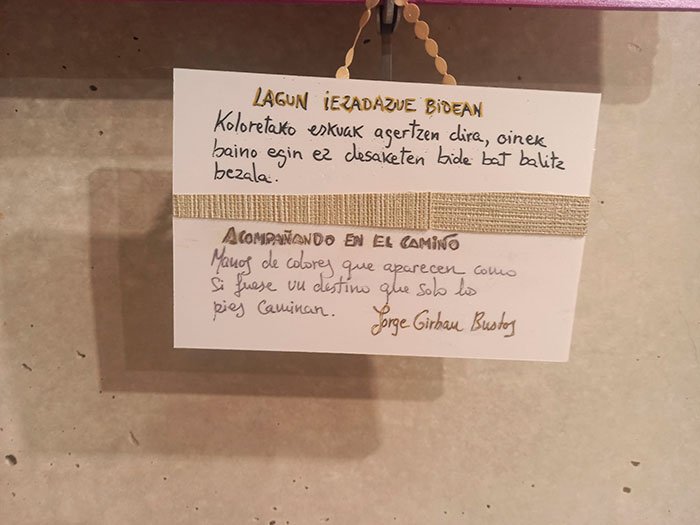 LAGUN IEZADAZUE BIDEAN
Koloretako eskuak agertzen dira, oinek
baino egin ez desaketen bide bat balitz
bezala.
ACOMPAÑANDO EN EL CAMINO
Manos de colores que aparecen como
si fuese un destino que solo los
pies caminan.
Jorge Girbau Bustos